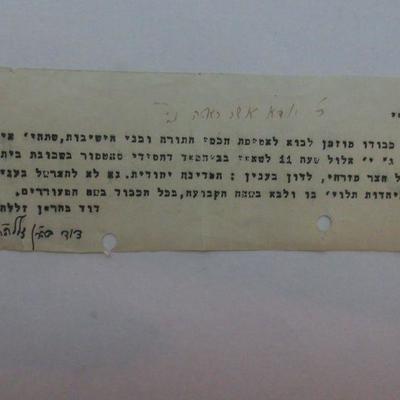 ר' יודא אשר
כבודו מוזמן לבוא לאסיפת חכמי התורה ובני הישיבות, שתהי' אי
ג' י' אלול שעה 11 לפאות בביהמד דחסידי סאטמור בשכונת בית
ל חצר מזרחי, לדון בענין : המדינה יהודית. נא לא להתרשל בעני
יהדות תלוי' בו ולבא בשעה הקבועה, בכל הכבוד בשם המעוררים.
דוד בהרמן זללה
דוד